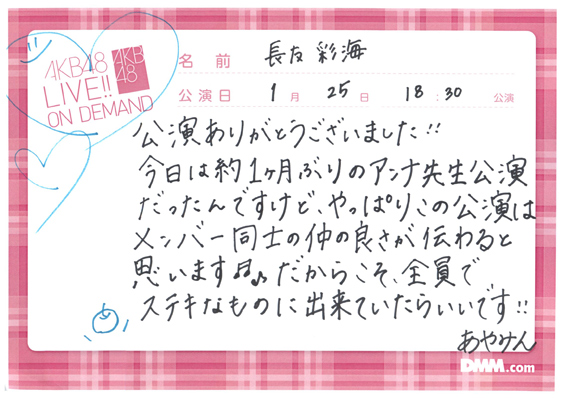 AKB48
LIVE!!
ON DEMAND
AKB
48
名前 長友彩海
公演日 1月 25日 18:30 公演
公演ありがとうございました!!
今日は約1ヶ月ぶりのアンナ先生公演
だったんですけど、やっぱりこの公演は
メンバー同士の仲の良さが伝わると
思います♬♪だからこそ、全員で
ステキなものに出来ていたらいいです!!
あやみん
DMM.com